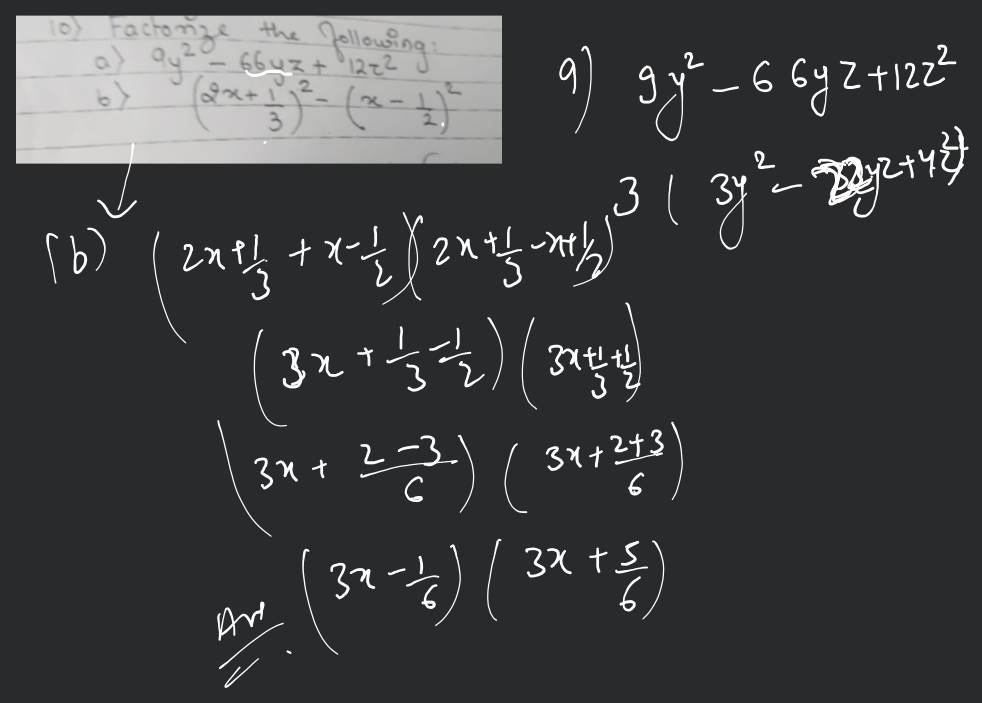 10) Factorize the following:
a) 9y² - 66yz + 12z²
b) (2x + 1/3)² - (x - 1/2)²
9) 9y² - 66yz + 12z²
3 ( 3y² - 22yz + 4z²)
(b) (2x + 1/3 + x - 1/2)(2x + 1/3 - x + 1/2)
(3x + 1/3 - 1/2) (3x + 1/3 + 1/2)
(3x + 2-3/6) (3x + 2+3/6)
(3x - 1/6) (3x + 5/6)
Ans.